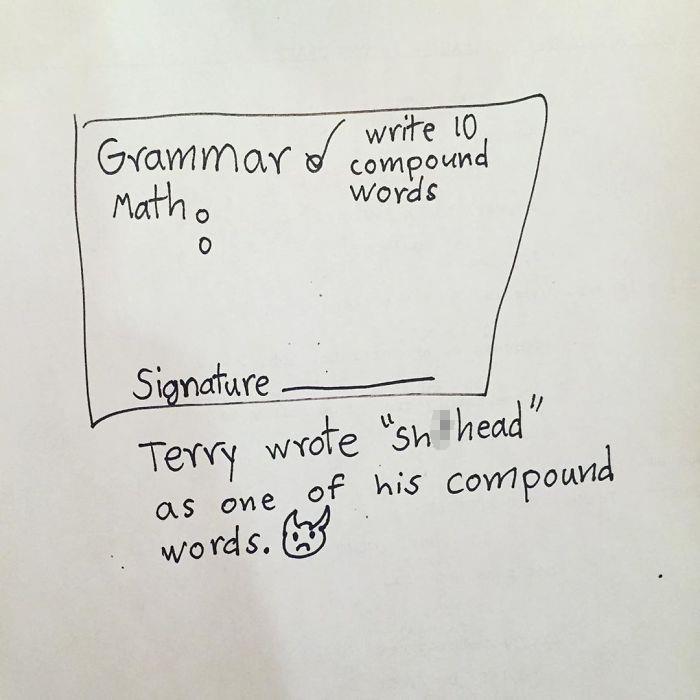 Grammar ✓ write 10
compound
words
Math
Signature
Terry wrote "sh head"
as one of his compound
words.